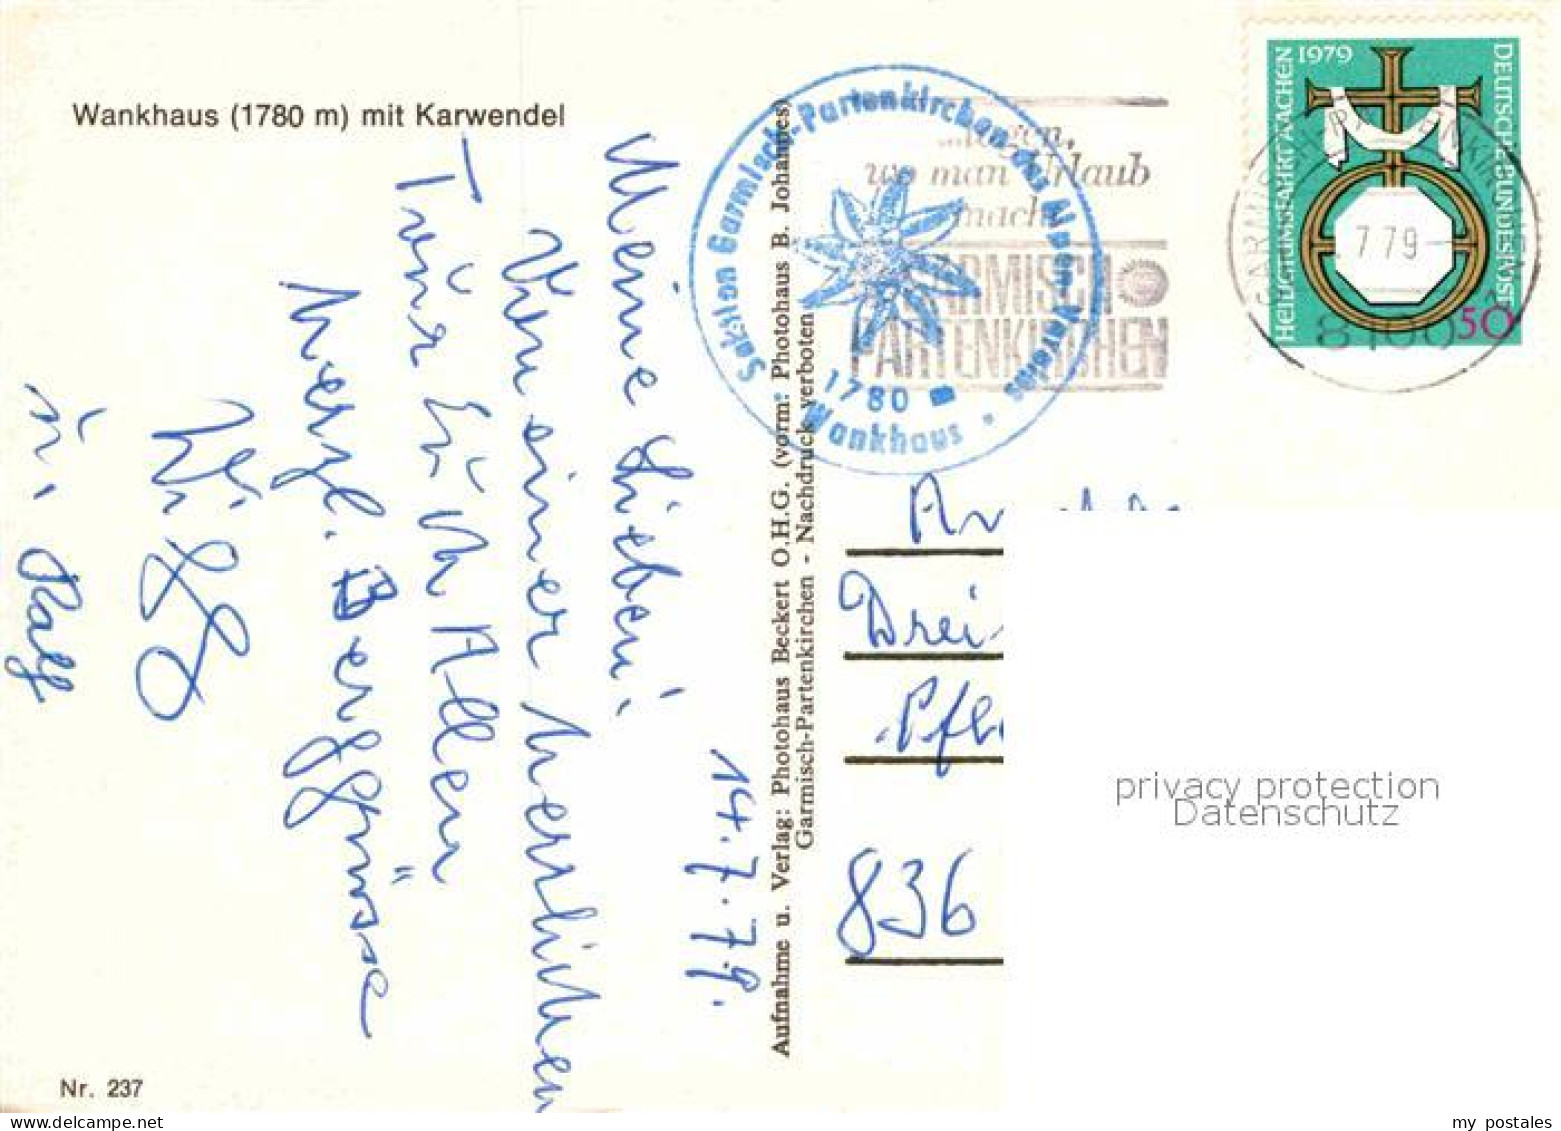 Wankhaus (1780 m) mit Karwendel
14.7.79.
Meine Lieben!
Von einer herrlichen
Tour Euch Allen
herzl. Berggrüsse
u. Ralf
Nr. 237
Aufnahme u. Verlag: Photohaus Beckert O.H.G. (vorm: Photohaus B. Johannes)
Garmisch-Partenkirchen - Nachdruck verboten
Sektion Garmisch-Partenkirchen des Alpen Vereins
1780 m
Wankhaus
...gen,
wo man Urlaub
macht
GARMISCH
PARTENKIRCHEN
HEILIGTUMSFAHRT AACHEN 1979
DEUTSCHE BUNDESPOST
50
GARMISCH-PARTENKIRCHEN
7 79
8100
Drei
836
privacy protection
Datenschutz
my postales